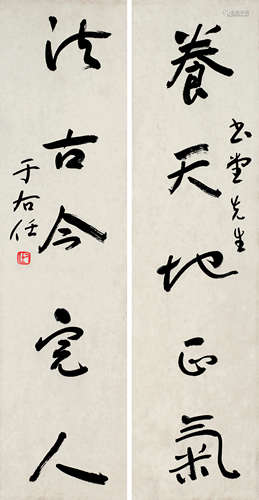 養天地正氣
書堂先生
法古今完人
于右任